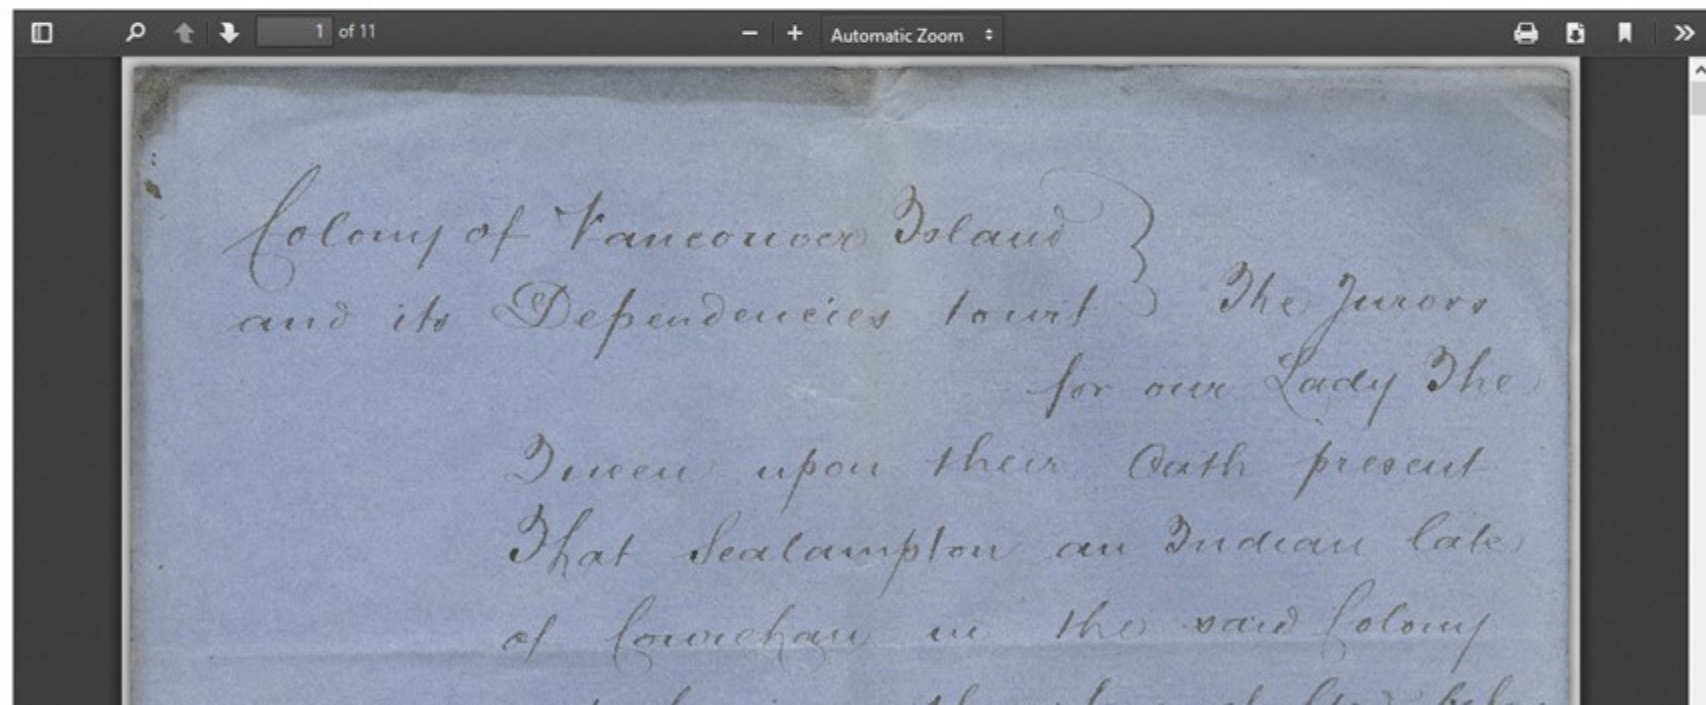 1 of 11 Automatic Zoom
Colony of Vancouver Island
and its Dependencies towit } The Jurors
for our Lady The
Queen upon their Oath present
That Sealampton an Indian late
of Cowichan in the said Colony